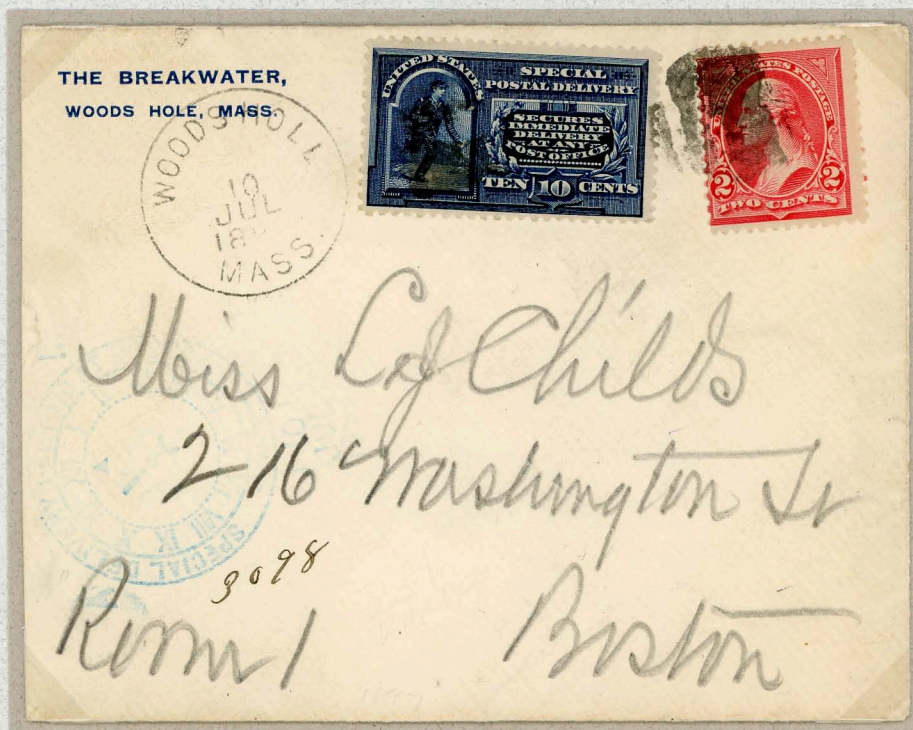 THE BREAKWATER,
WOODS HOLE, MASS.
WOODS HOLL
10
JUL
MASS.
UNITED STATES
SPECIAL
POSTAL DELIVERY
SECURES
IMMEDIATE
DELIVERY
AT ANY
POST OFFICE
TEN 10 CENTS
UNITED STATES POSTAGE
2 2
TWO CENTS
Miss Childs
216 Washington St
3098
Room 1 Boston
SPECIAL DELIVERY